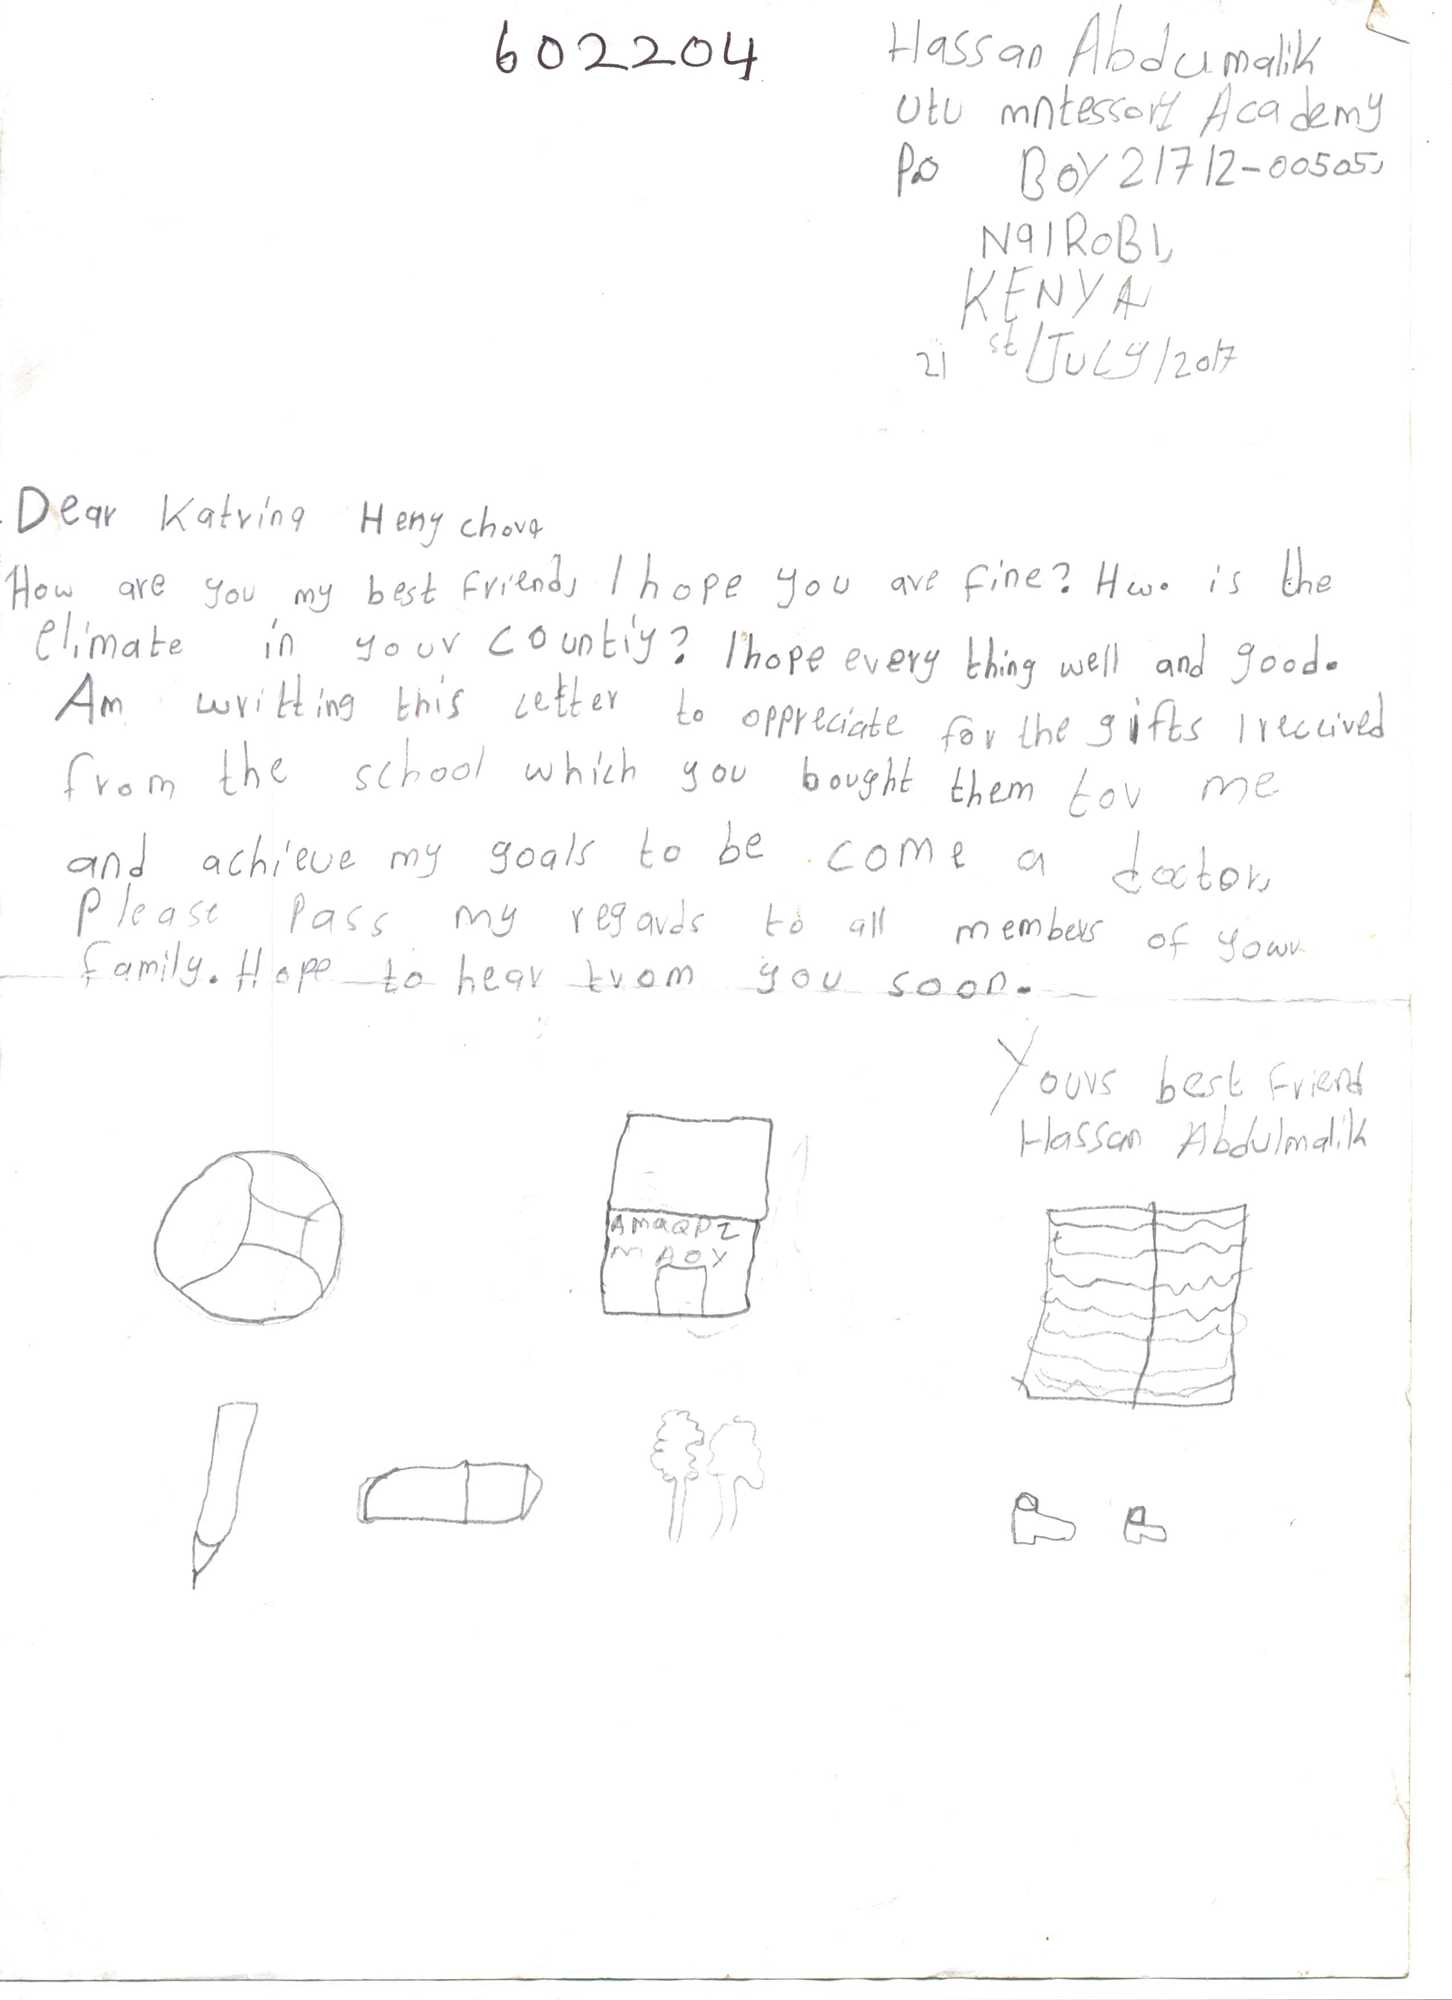 602204
Hassan Abdumalik
Utu mntessory Academy
P.o BOY 21712-00505,
NAIROBI,
KENYA
21st/JULY/2017
Dear Katrina Heny chova
How are you my best friend, I hope you are fine? Hw. is the
climate in your countiy? I hope every thing well and good.
Am writting this letter to appreciate for the gifts I received
from the school which you bought them tor me
and achieve my goals to be come a doctor,
Please Pass my regards to all members of your
family. Hope to hear trom you soon.
Yours best Friend
Hassan Abdulmalik